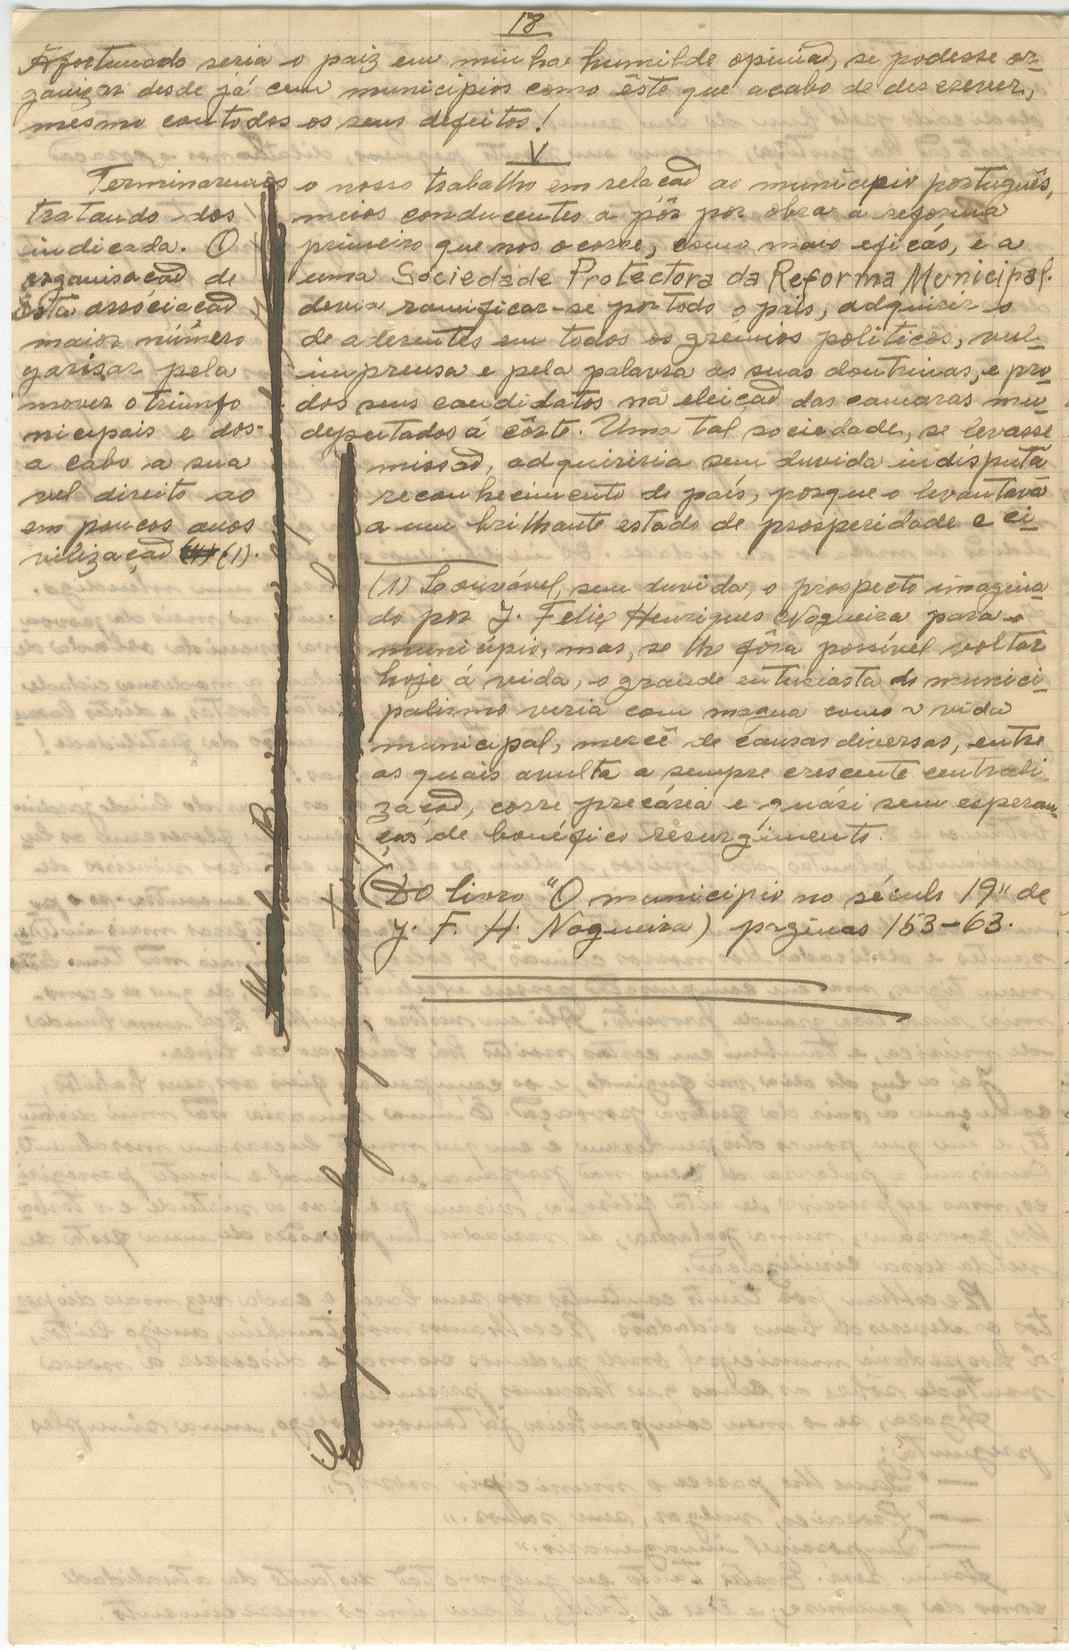 18
Afortunado seria o paiz em minha humilde opinião, se podesse or-
ganizar desde já cem municipios como êste que acabo de descrever,
mesmo com todos os seus defeitos!
V
Terminaremos o nosso trabalho em relação ao municipio português,
tratando dos meios conducentes a pôr por obra a reforma
indicada. O primeiro que nos ocorre, como mais eficás, é a
organisação de uma Sociedade Protectora da Reforma Municipal.
Esta associação devia ramificar-se por todo o pais, adquirir o
maior número de aderentes em todos os grémios politicos, vul-
garisar pela imprensa e pela palavra as suas doutrinas, e pro-
mover o triunfo dos seus candidatos na eleição das camaras mu-
nicipais e dos deputados á côrte. Uma tal sociedade, se levasse
a cabo a sua missão, adquiriria sem duvida indisputá-
vel direito ao reconhecimento do país, porque o levantará
em poucos anos a um brilhante estado de prosperidade e ci-
vilização (1).
(1) Louvável, sem duvida, o prospecto imagina-
do por J. Felix Henriques Nogueira para o
município, mas, se lhe fôra possível voltar
hoje á vida, o grande entusiasta do munici-
palismo veria com magua como a vida
municipal, mercê de causas diversas, entre
as quais avulta a sempre crescente centrali-
zação, corre precária e quási sem esperan-
ças de benéfico resurgimento.
(Do livro "O municipio no século 19" de
J. F. H. Nogueira) paginas 153-63.